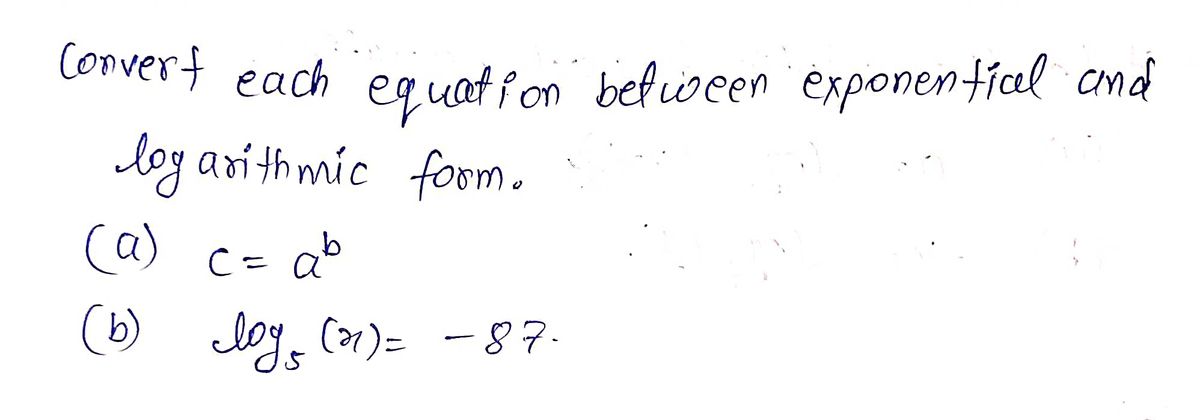 Convert each equation between exponential and
logarithmic form.
(a) c = a^b
(b) log₅ (x) = -87.